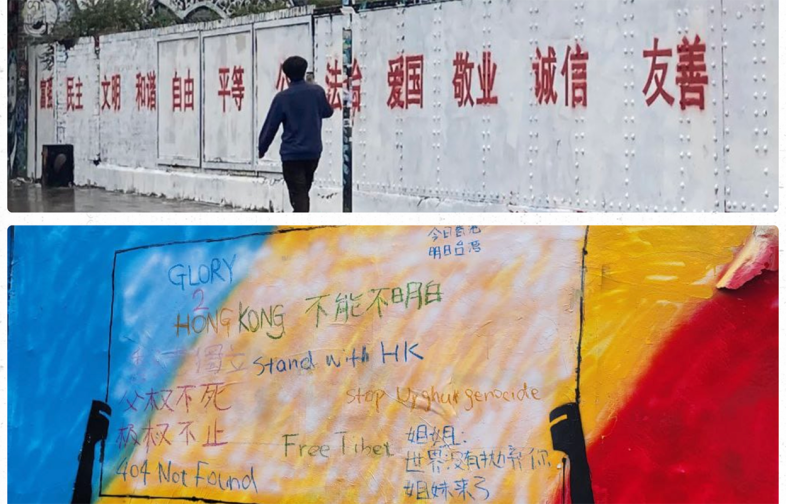 富强 民主 文明 和谐 自由 平等 法治 爱国 敬业 诚信 友善
今日香港
明日台湾
GLORY
2
HONG KONG 不能不明白
独立 Stand with HK
父权不死 Stop Uyghur genocide
极权不止 Free Tibet 姐姐:
世界没有抛弃你
404 Not Found 姐妹来了